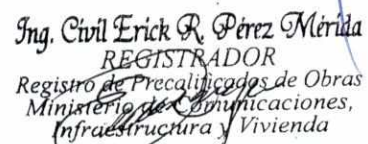 Ing. Civil Erick R. Pérez Mérida
REGISTRADOR
Registro de Precalificados de Obras
Ministerio de Comunicaciones,
Infraestructura y Vivienda